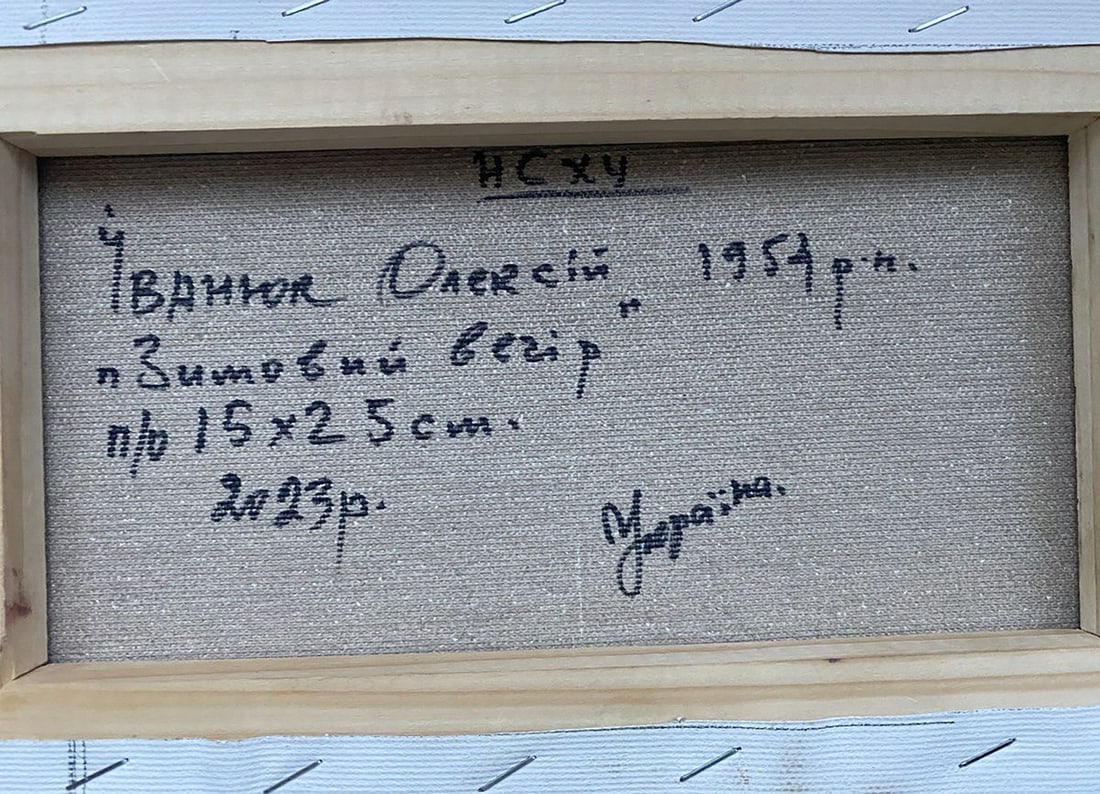 НСХУ
Іванюк Олексій 1954 р.н.
„Зимовий вечір"
п/о 15х25 cm.
2023р.
Україна.